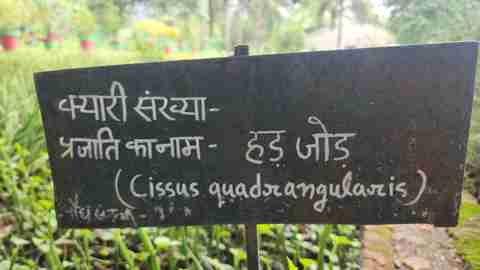 क्यारी संख्या-
प्रजाति का नाम- हड़ जोड़
(Cissus quadrangularis)